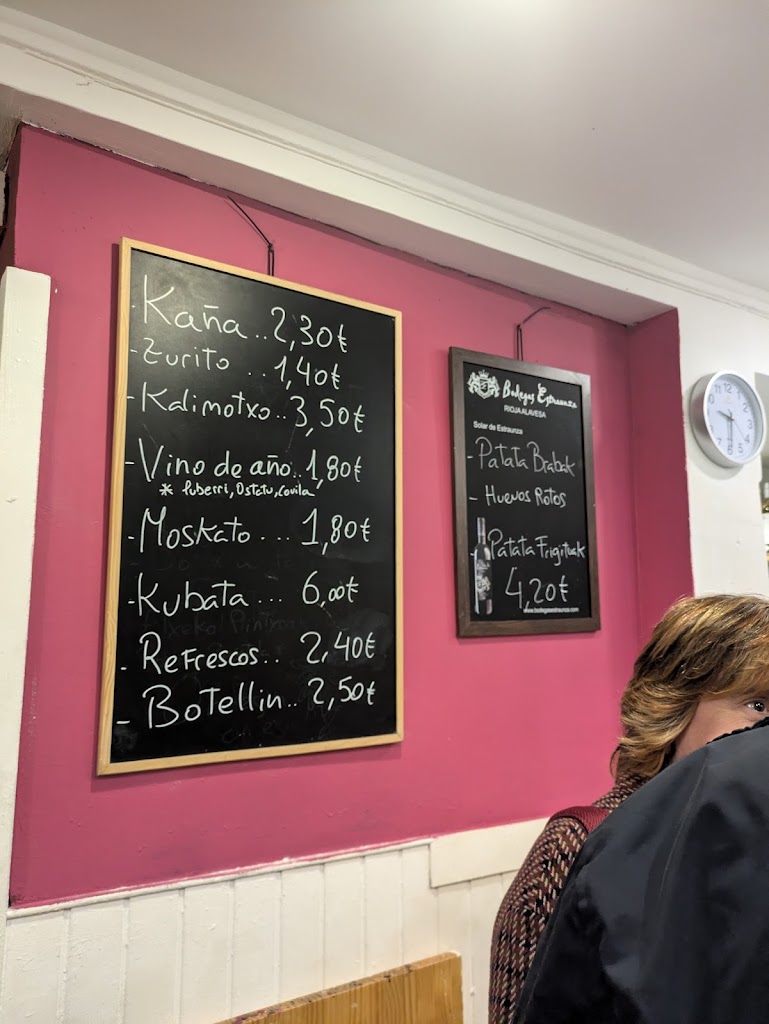 - Kaña .. 2,30€
- Zurito .. 1,40€
- Kalimotxo .. 3,50€
- Vino de año .. 1,80€
* Puberri, Ostatu, Covila
- Moskato ... 1,80€
- Kubata ... 6,00€
- Refrescos .. 2,40€
- Botellin .. 2,50€
Bodegas Estraunza
RIOJA ALAVESA
Solar de Estraunza
- Patata Brabak
- Huevos Rotos
- Patata Frigituak
4,20€
www.bodegasestraunza.com